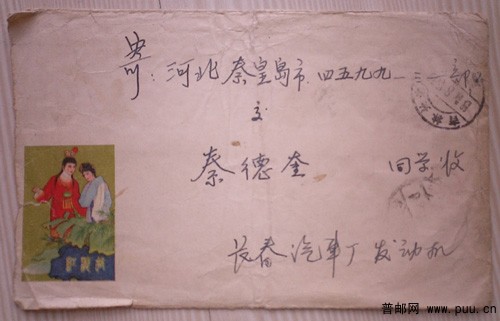 寄: 河北秦皇岛市 四五九九一三一部队
交
秦德奎 同学收
长春汽车厂发动机
普邮网 www.puu.cn